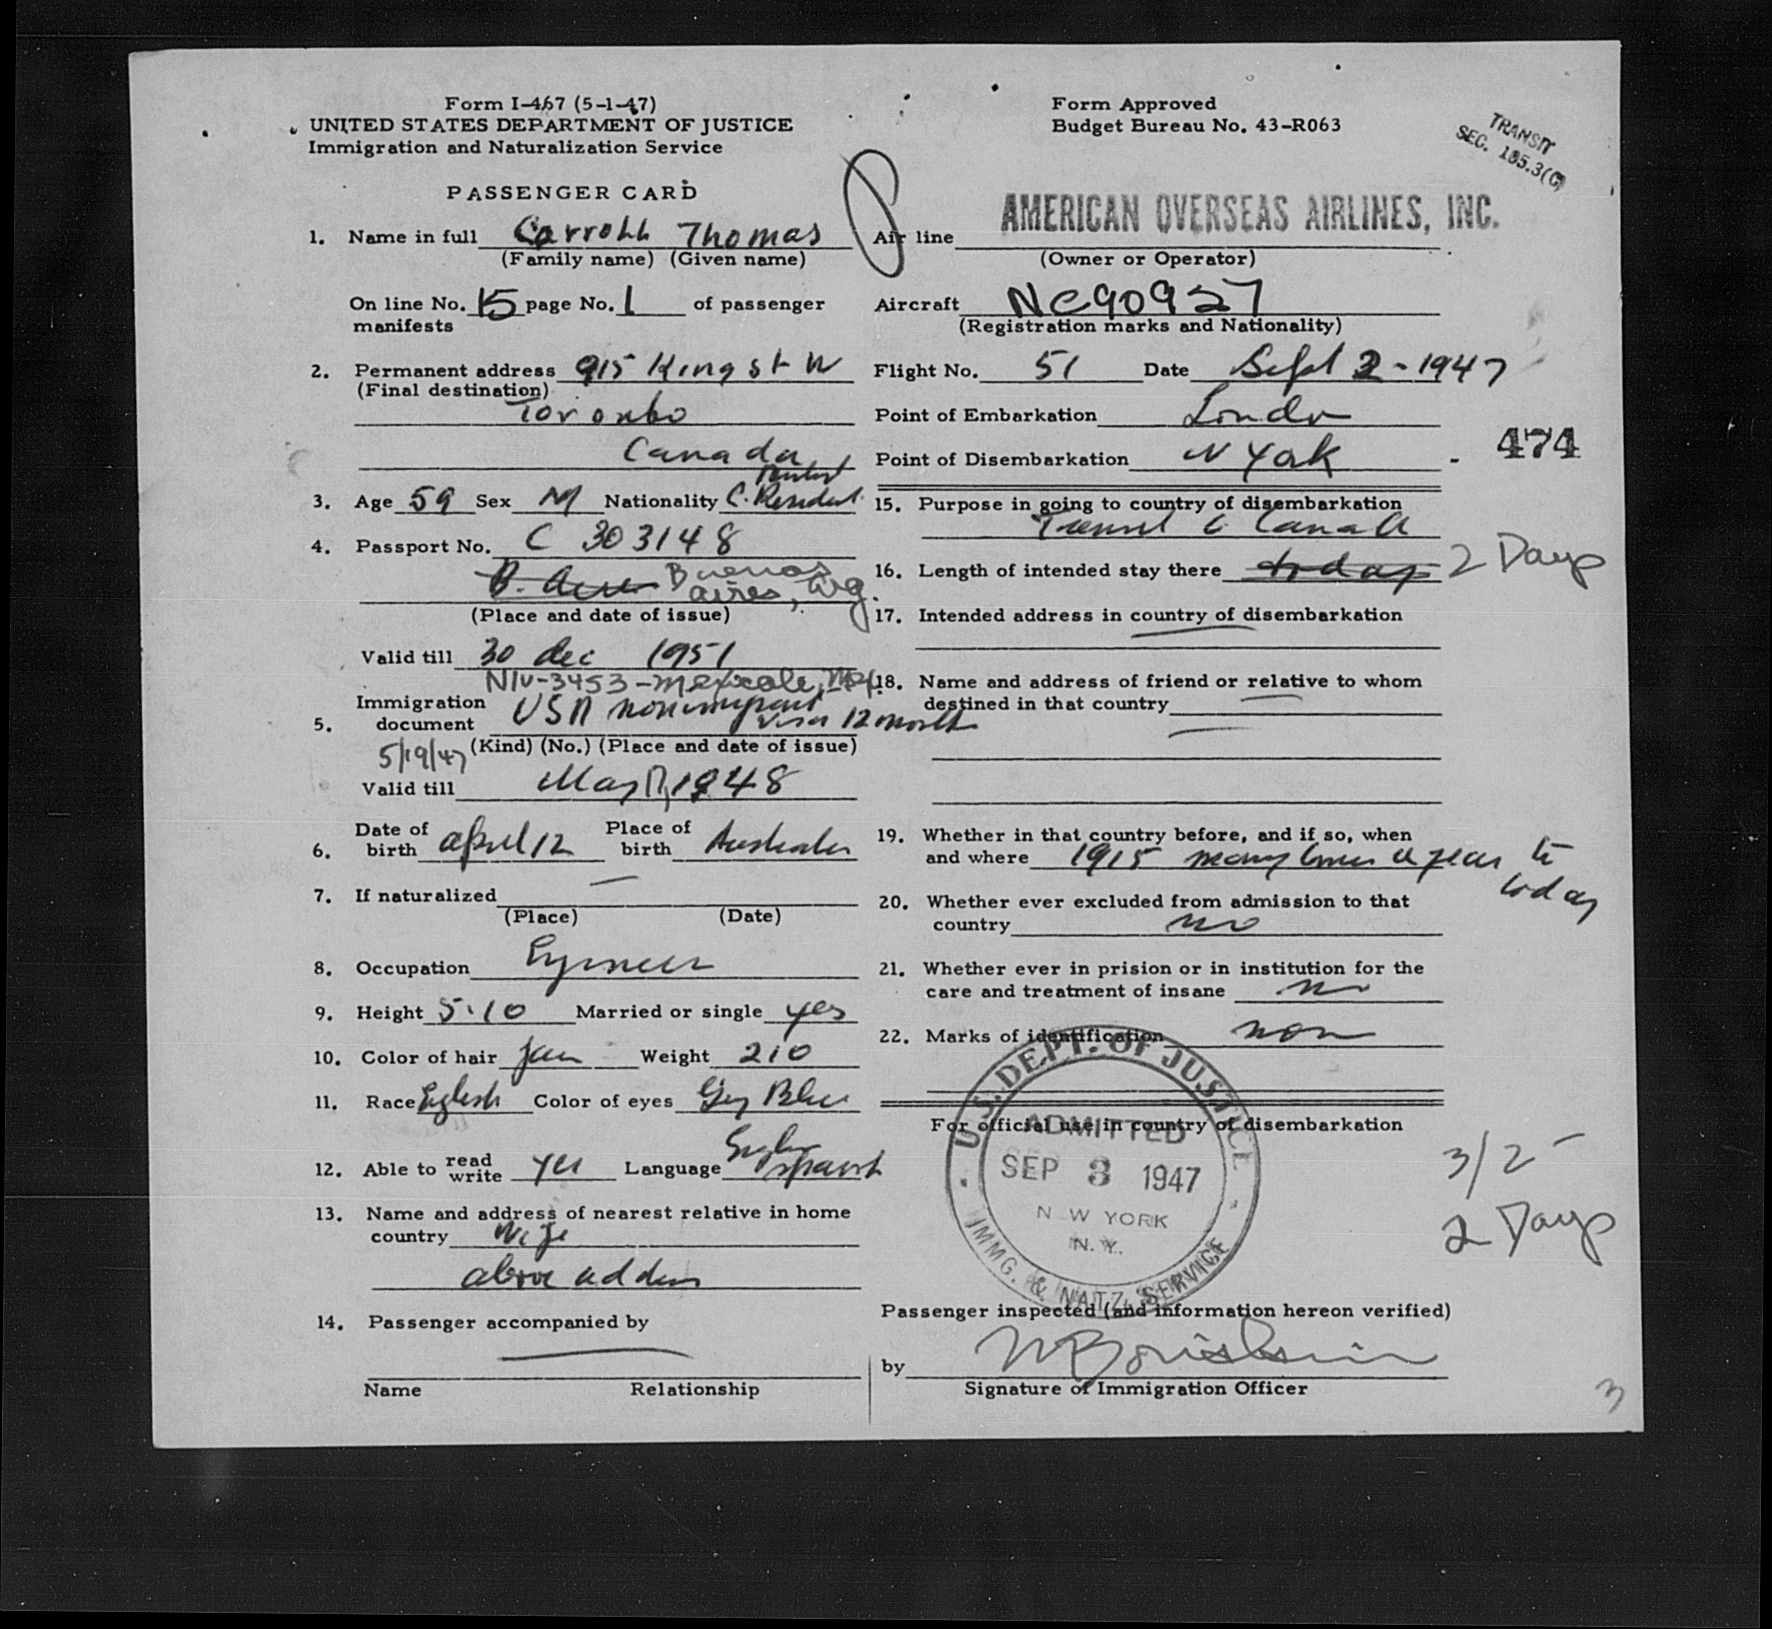 Form I-467 (5-1-47)
UNITED STATES DEPARTMENT OF JUSTICE
Immigration and Naturalization Service
Form Approved
Budget Bureau No. 43-R063
TRANSIT
SEC. 185.3(C)
PASSENGER CARD
1. Name in full Carroll Thomas
(Family name) (Given name)
On line No. 15 page No. 1 of passenger
manifests
2. Permanent address 915 King st W
(Final destination)
Toronto
Canada
3. Age 59 Sex M Nationality C. Resident
4. Passport No. C 303148
B. Aires Buenos
aires, Arg.
(Place and date of issue)
Valid till 30 dec 1951
NIV-3453-Mexicali, Mex.
Immigration
5. document USA nonimmigrant
visa 12 month
5/19/47 (Kind) (No.) (Place and date of issue)
Valid till May 1948
6. Date of birth april 12 Place of birth Australia
7. If naturalized —
(Place) (Date)
8. Occupation Engineer
9. Height 5.10 Married or single yes
10. Color of hair Weight 210
11. Race English Color of eyes Grey Blue
12. Able to read write yes Language English
Spanish
13. Name and address of nearest relative in home
country Wife
above address
14. Passenger accompanied by
—
Name Relationship
AMERICAN OVERSEAS AIRLINES, INC.
Air line
(Owner or Operator)
Aircraft NC90927
(Registration marks and Nationality)
Flight No. 51 Date Sept 2-1947
Point of Embarkation London
Point of Disembarkation N York
- 474
15. Purpose in going to country of disembarkation
Transit to Canada
16. Length of intended stay there today 2 Days
17. Intended address in country of disembarkation
18. Name and address of friend or relative to whom
destined in that country
19. Whether in that country before, and if so, when
and where 1915 many times a year to
today
20. Whether ever excluded from admission to that
country no
21. Whether ever in prision or in institution for the
care and treatment of insane no
22. Marks of identification non
For official use in country of disembarkation
U.S. DEPT. OF JUSTICE
ADMITTED
SEP 3 1947
N W YORK
N.Y.
IMMG. & NATZ. SERVICE
3/2-
2 Days
Passenger inspected (and information hereon verified)
by
Signature of Immigration Officer
3